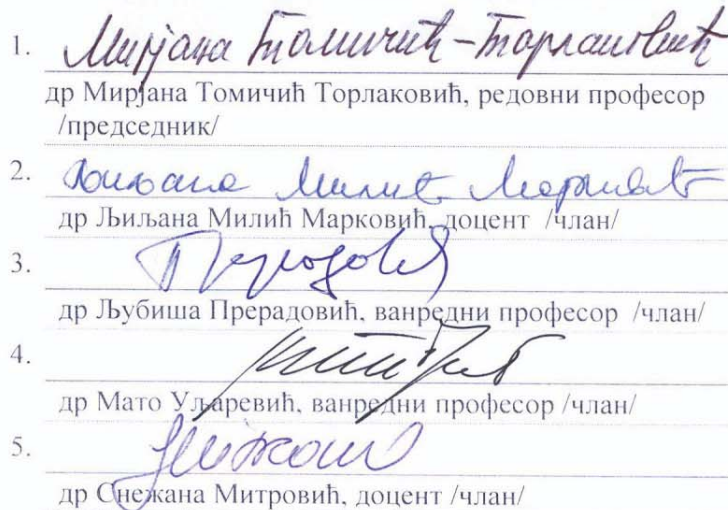 1. Мирјана Томичић-Торлаковић
др Мирјана Томичић Торлаковић, редовни професор
/председник/
2. Љиљана Милић Марковић
др Љиљана Милић Марковић, доцент /члан/
3.
др Љубиша Прерадовић, ванредни професор /члан/
4.
др Мато Уљаревић, ванредни професор /члан/
5.
др Снежана Митровић, доцент /члан/